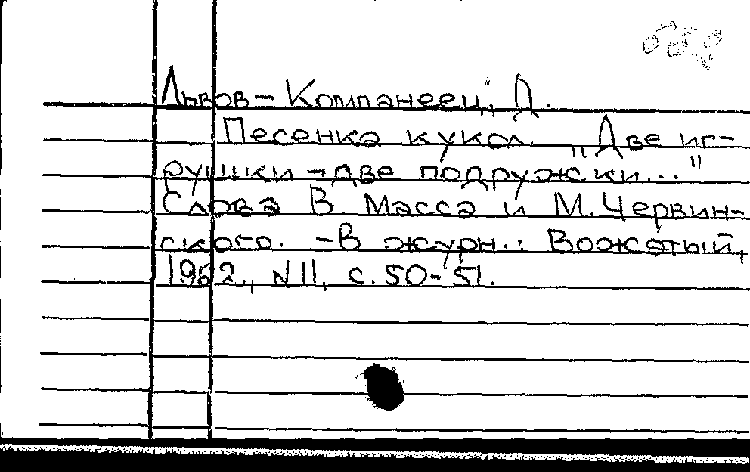 Львов-Компанеец, Д.
Песенка кукол „Две иг-
рушки - две подружки..."
Слова В. Масса и М. Червин-
ского. - В журн.: Вожатый,
1962, N11, с. 50-51.